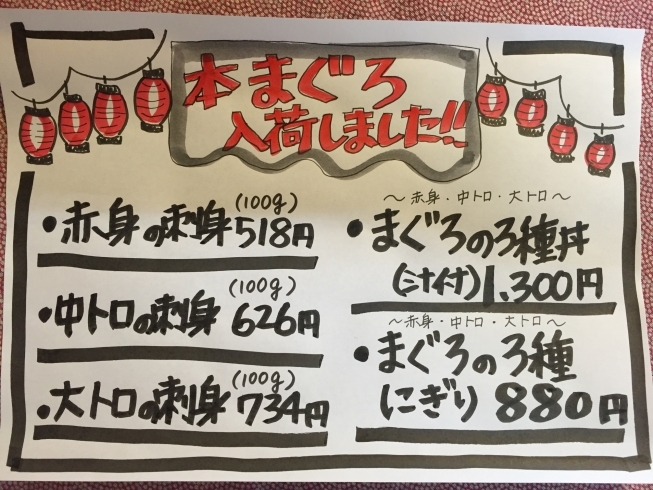 本まぐろ
入荷しました!!
(100g)
・赤身の刺身518円
(100g)
・中トロの刺身 626円
(100g)
・大トロの刺身 734円
～赤身・中トロ・大トロ～
・まぐろの3種丼
(汁付)1,300円
～赤身・中トロ・大トロ～
・まぐろの3種
にぎり 880円